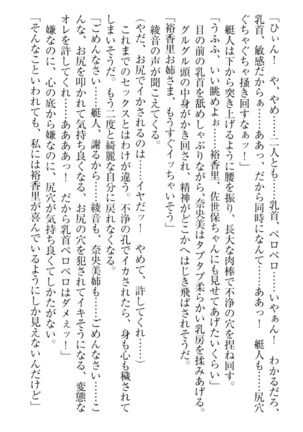 「ひぃん！　や、やめ……二人とも……乳首、ペロペロ……いやぁん！　わかるだろ、
乳首、敏感だからぁ……ああっ、だから同時になんて……ああっ！　艇人も……尻穴
ぐちゃぐちゃ掻き回すなぁッ！」
艇人は下から突き上げるように腰を振り、長大な肉棒で不浄の穴を捏ね回す。
「うふふ、いい眺めよぉ……裕香里、佐世保ちゃんにも見せてあげたいくらい」
目の前の乳首を舐めしゃぶりながら、奈央美はタプタプ柔らかい乳房を揉みあげる。
グルグル頭の中身がかき回され、精神がどこかへはじき飛ばされそうだ。
「裕香里お姉さま、もうすぐイッちゃいそう」
綾音の声が聞こえてくる。
「やだ、お尻でイかされるのは……イヤだッ！　やめて、許してくれ……」
これまでのセックスとはわけが違う。不浄の孔でイカされたら、身も心も汚されて
しまいそうだ。もう二度と綺麗な自分に戻れなくなる。
「ごめんなさい……艇人、謝るから……綾音も、奈央美姉も……ごめんなさい……こ
んな、お尻を叩かれて気持ち良くなる、お尻の穴を犯されてイキそうになる、変態な
オレを許してくれ……ああああっ！　だから乳首ペロペロはダメぇッ！」
嫌なのに、心の底から嫌なのに、尻穴が気持ち良くてしかたがない。
「そんなこといわれても、私には裕香里が喜んでいるようにしか見えないんだけど」